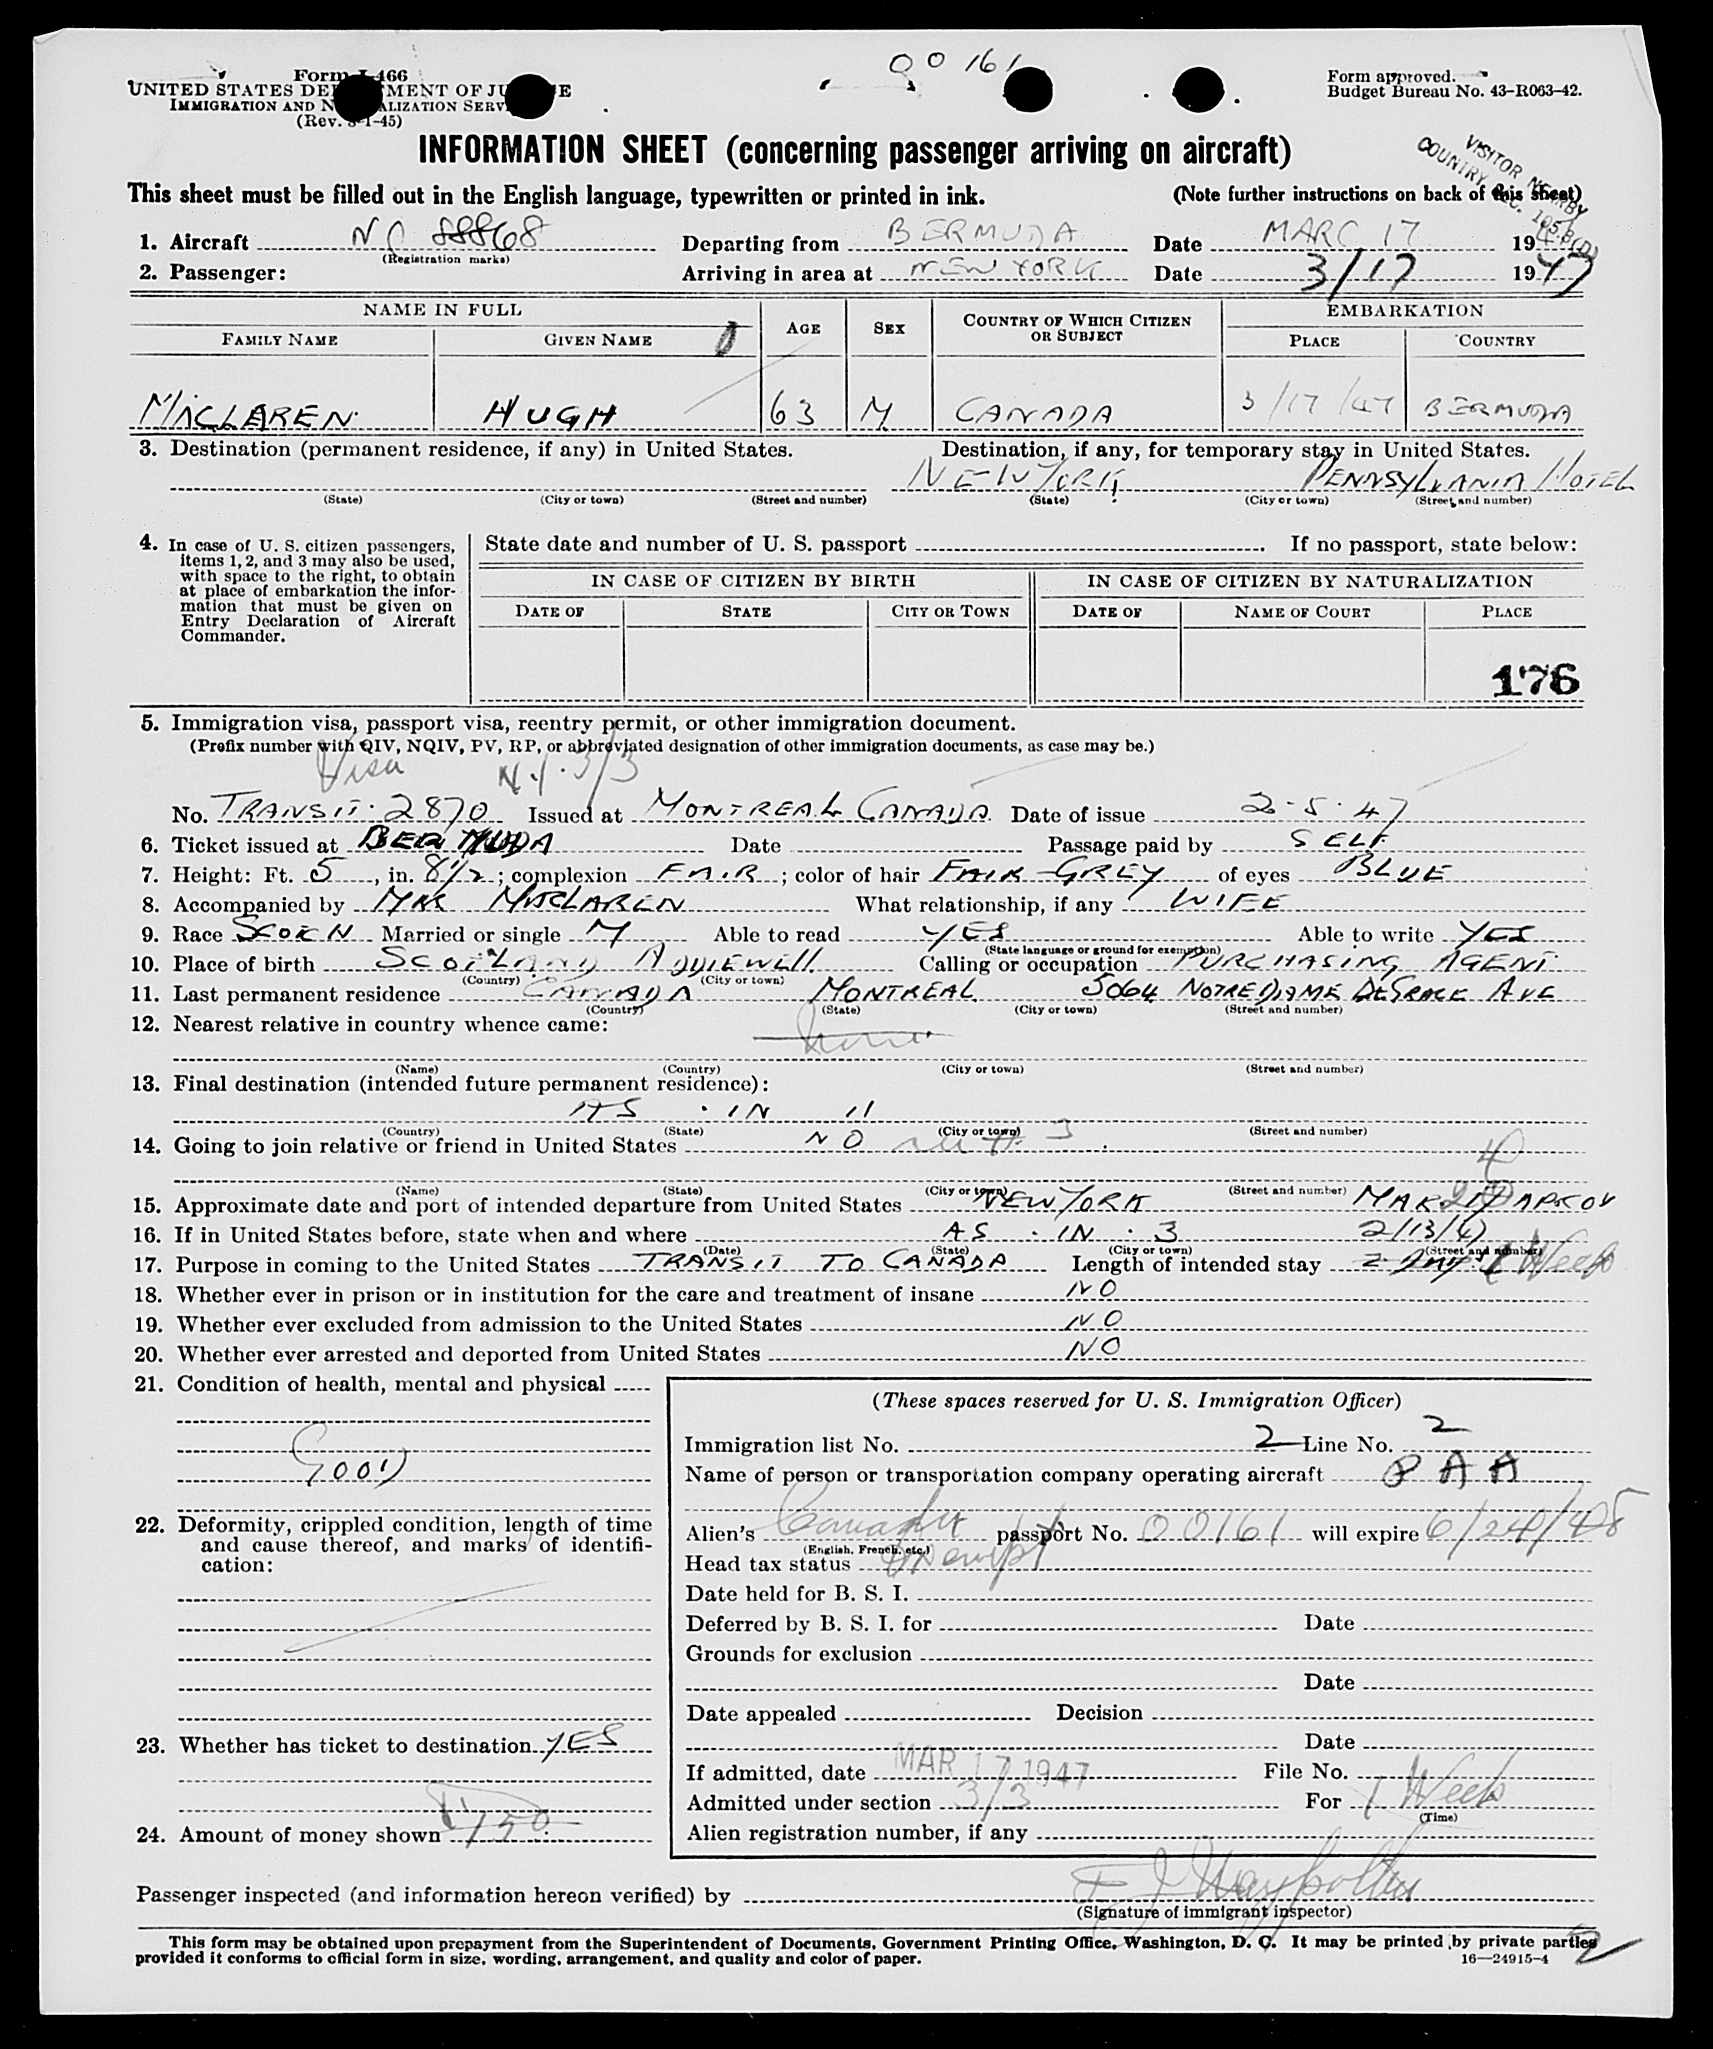 00161
Form I-466
UNITED STATES DEPARTMENT OF JUSTICE
IMMIGRATION AND NATURALIZATION SERVICE
(Rev. 3-1-45)
Form approved.
Budget Bureau No. 43-R063-42.
INFORMATION SHEET (concerning passenger arriving on aircraft)
VISITOR NEARBY
COUNTRY, SEC.
This sheet must be filled out in the English language, typewritten or printed in ink. (Note further instructions on back of this sheet)
1. Aircraft NC 88868 Departing from BERMUDA Date MARC 17 19
(Registration marks)
2. Passenger: Arriving in area at NEW YORK Date 3/17 1947
NAME IN FULL AGE SEX COUNTRY OF WHICH CITIZEN OR SUBJECT EMBARKATION
FAMILY NAME GIVEN NAME PLACE COUNTRY
MACLAREN HUGH 63 M CANADA 3/17/47 BERMUDA
3. Destination (permanent residence, if any) in United States. Destination, if any, for temporary stay in United States.
NEW YORK PENNSYLVANIA HOTEL
(State) (City or town) (Street and number) (State) (City or town) (Street and number)
4. In case of U. S. citizen passengers, items 1, 2, and 3 may also be used, with space to the right, to obtain at place of embarkation the information that must be given on Entry Declaration of Aircraft Commander.
State date and number of U. S. passport . If no passport, state below:
IN CASE OF CITIZEN BY BIRTH IN CASE OF CITIZEN BY NATURALIZATION
DATE OF STATE CITY OR TOWN DATE OF NAME OF COURT PLACE
176
5. Immigration visa, passport visa, reentry permit, or other immigration document.
(Prefix number with QIV, NQIV, PV, RP, or abbreviated designation of other immigration documents, as case may be.)
Visa 3/3
No. TRANSIT. 2870 Issued at MONTREAL CANADA Date of issue 2-5-47
6. Ticket issued at BERMUDA Date Passage paid by SELF
7. Height: Ft. 5, in. 8½; complexion FAIR; color of hair FAIR-GREY of eyes BLUE
8. Accompanied by MRS MACLAREN What relationship, if any WIFE
9. Race SCOTCH Married or single M Able to read YES Able to write YES
(State language or ground for exemption)
10. Place of birth SCOTLAND ADDIEWELL Calling or occupation PURCHASING AGENT
(Country) (City or town)
11. Last permanent residence CANADA MONTREAL 5064 NOTRE DAME DE GRACE AVE
(Country) (State) (City or town) (Street and number)
12. Nearest relative in country whence came:
none
(Name) (Country) (City or town) (Street and number)
13. Final destination (intended future permanent residence):
AS IN 11
(Country) (State) (City or town) (Street and number)
14. Going to join relative or friend in United States NO
(Name) (State) (City or town) (Street and number)
15. Approximate date and port of intended departure from United States NEW YORK
16. If in United States before, state when and where AS IN 3 2/13/47
(Date) (State) (City or town) (Street and number)
17. Purpose in coming to the United States TRANSIT TO CANADA Length of intended stay 1 Week
18. Whether ever in prison or in institution for the care and treatment of insane NO
19. Whether ever excluded from admission to the United States NO
20. Whether ever arrested and deported from United States NO
21. Condition of health, mental and physical
GOOD
22. Deformity, crippled condition, length of time and cause thereof, and marks of identification:
23. Whether has ticket to destination YES
24. Amount of money shown 150
(These spaces reserved for U. S. Immigration Officer)
Immigration list No. 2 Line No. 2
Name of person or transportation company operating aircraft PAA
Alien's Canadn passport No. 00161 will expire 6/24/48
(English, French, etc.)
Head tax status Exempt
Date held for B. S. I.
Deferred by B. S. I. for Date
Grounds for exclusion
Date
Date appealed Decision
Date
If admitted, date MAR 17 1947 File No.
Admitted under section 3/3 For 1 Week
(Time)
Alien registration number, if any
Passenger inspected (and information hereon verified) by
(Signature of immigrant inspector)
This form may be obtained upon prepayment from the Superintendent of Documents, Government Printing Office, Washington, D. C. It may be printed by private parties
provided it conforms to official form in size, wording, arrangement, and quality and color of paper. 16—24915-4
2